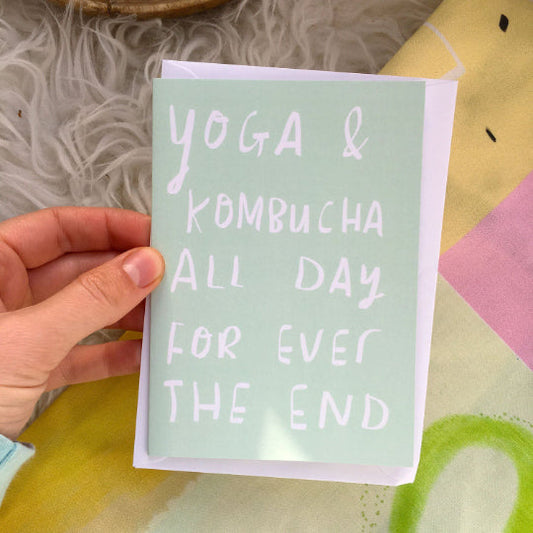 YOGA &
KOMBUCHA
ALL DAY
FOR EVER
THE END